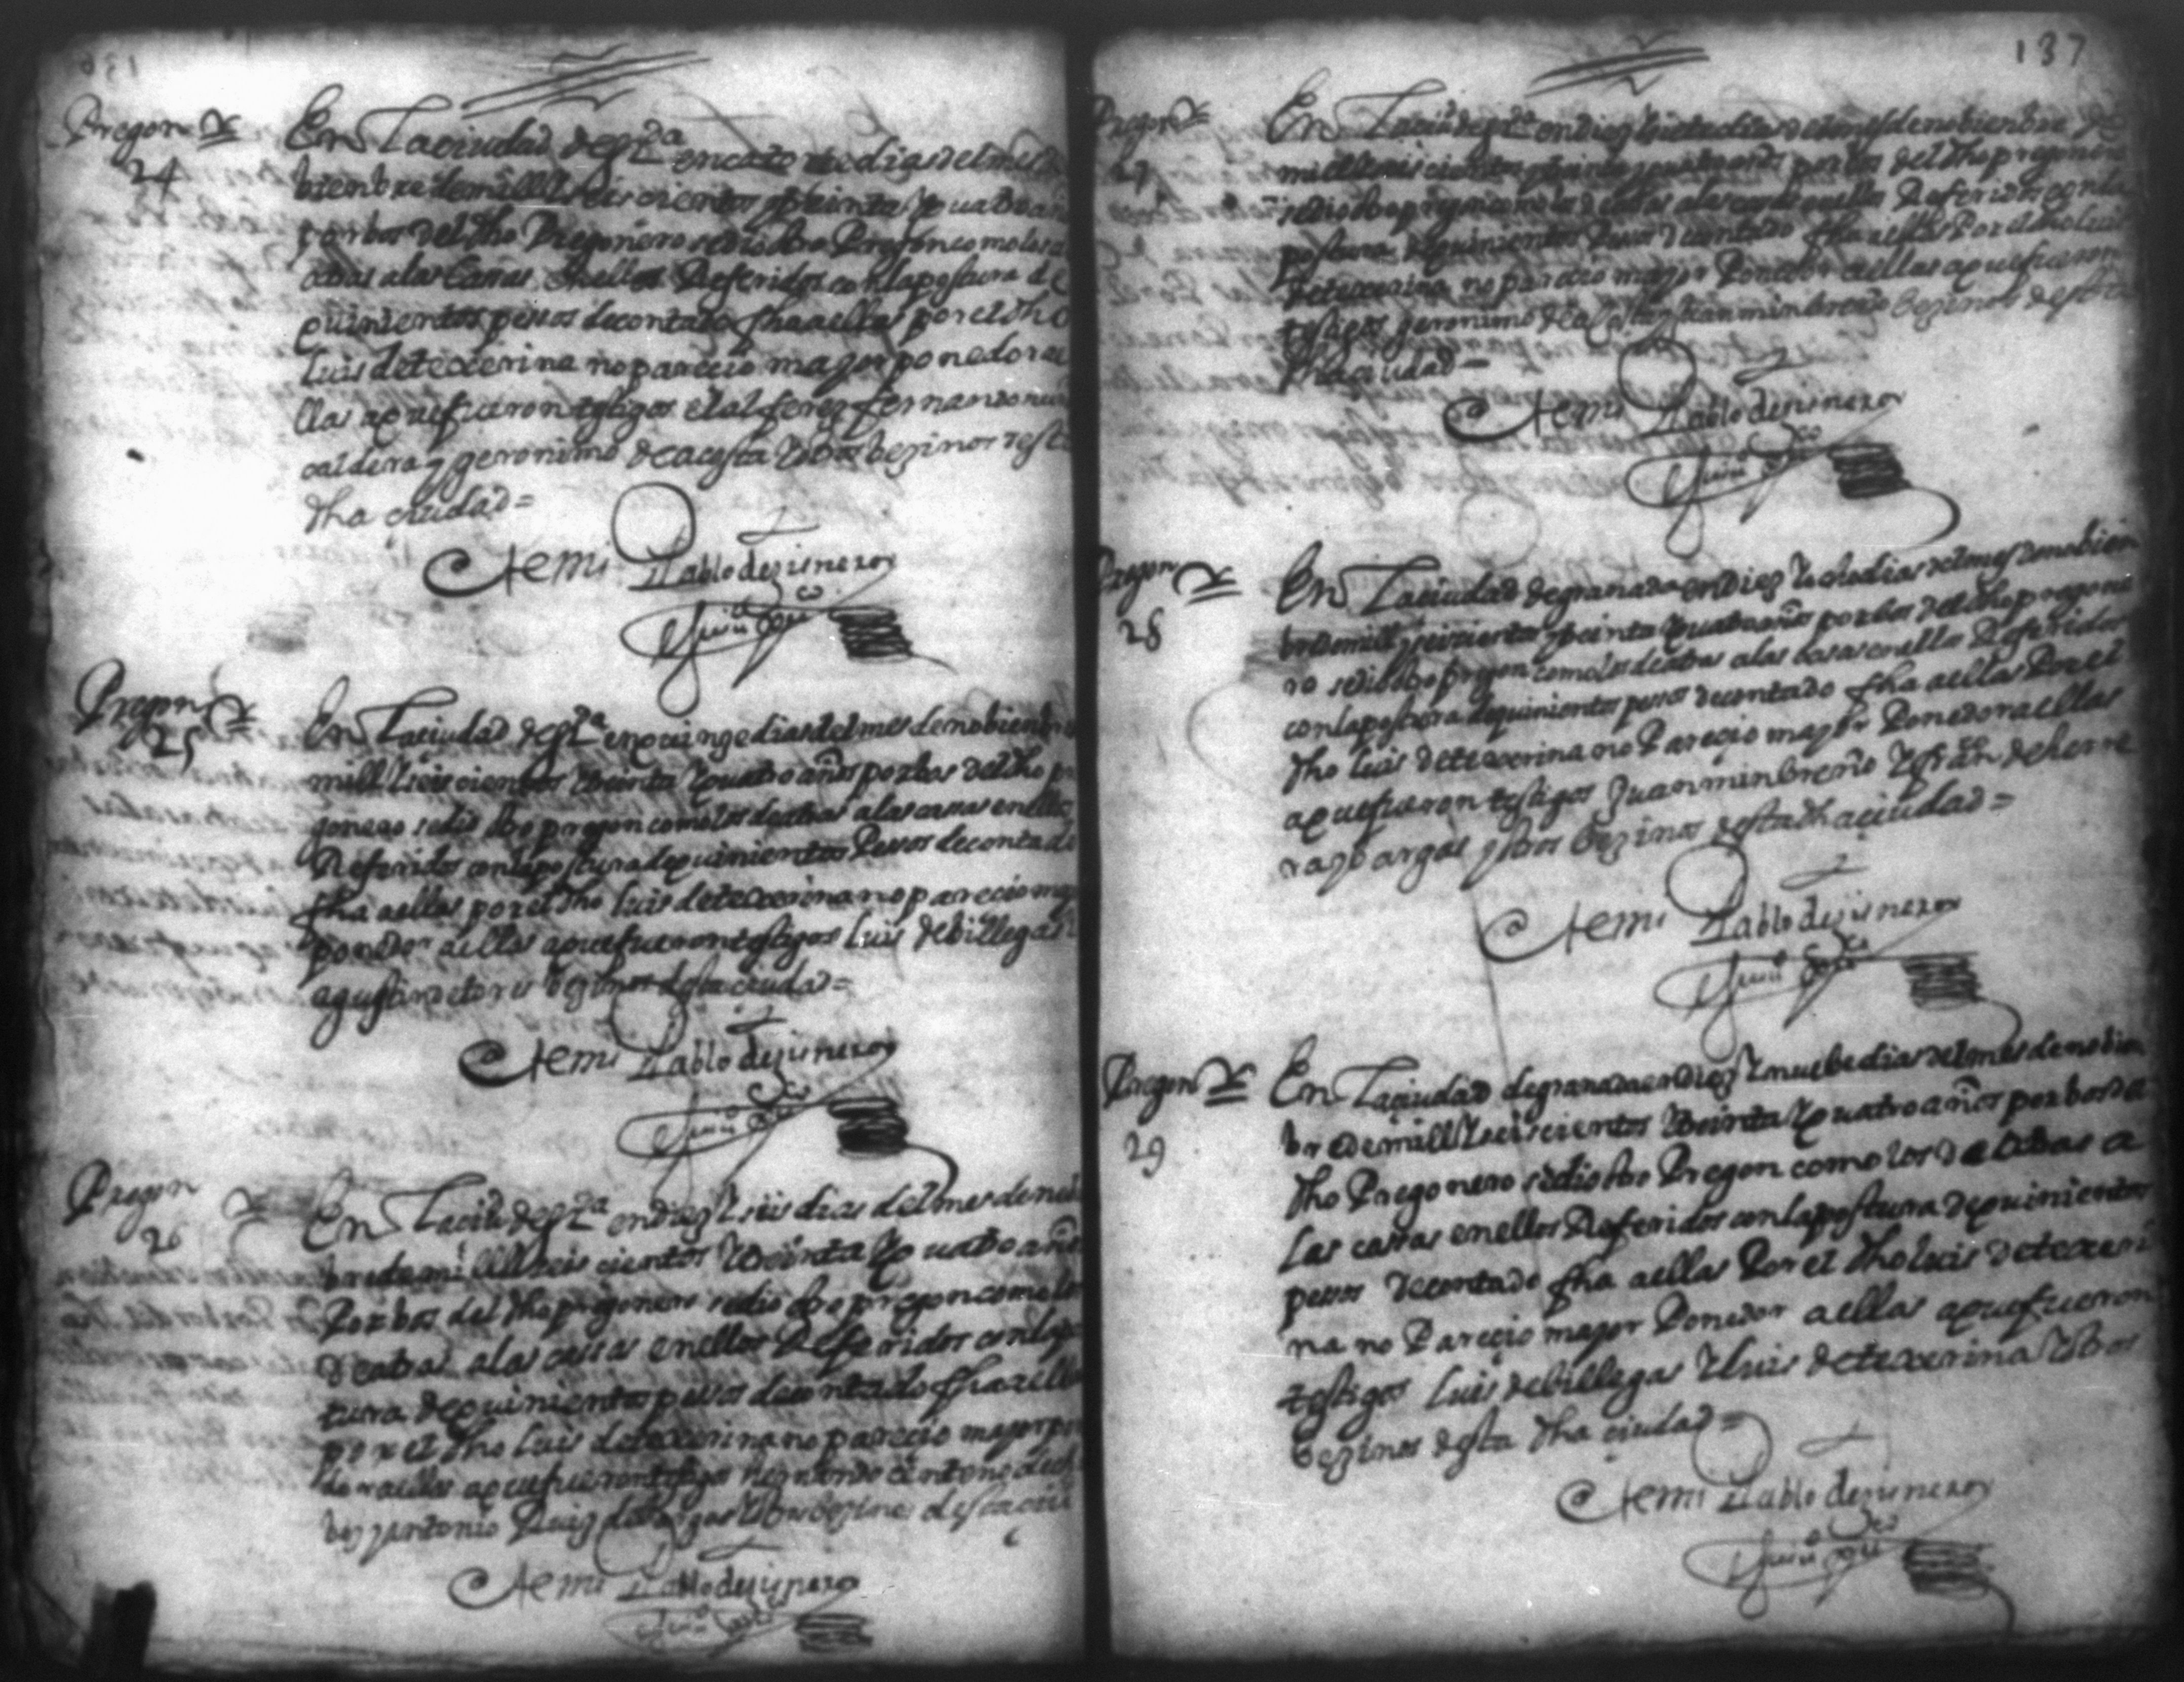 Pregon
24
En La ciudad de gra en catorze dias del mes de
biembre de mill y seis cientos y treinta y quatro añ
por bos del dho Pregonero se dio otro Pregon como los de
atras a las Casas en ellos Referidos con la postura de
quinientos pesos de contado fha a ellas por el dho
Luis de texerina no parecio mayor ponedor a e
llas a que fueron testigos el alferez fernando
caldera y geronimo de acosta y otros bezinos desta
dha ciudad=
Ante mi Pablo de zisneros
Pregon
25
En La ciudad de gra en quinze dias del mes de nobiembre
mill y seis cientos y treinta y quatro años por bos del dho pre
gonero se dio otro pregon como los de atras a las casas en ellos
Referidos con la postura de quinientos Pesos de contado
fha a ellas por el dho Luis de texerina no parecio mayor
ponedor a ellas a que fueron testigos Luis de billegas
agustin de bezinos desta ciudad=
Ante mi Pablo de zisneros
Pregon
26
En La ciud de gra en diez y seis dias del mes de nobiem
bre de mill y seis cientos y treinta y quatro años
Por bos del dho pregonero se dio otro pregon como los
de atras a las casas en ellos Referidos con la pos
tura de quinientos pesos de contado fha a ellas
por el dho Luis de texerina no parecio mayor pone
dor a ellas a que fueron testigos
y antonio Ruiz de bargas y otros bezinos desta ciu
Ante mi Pablo de zisneros
137
Pregon
27
En La ciu de gra en diez y siete dias del mes de nobiembre de
mill y seis cientos y treinta y quatro años por bos del dho pregonero
se dio otro pregon como los de atras a las casas en ellos Referidos con la
postura de quinientos pesos de contado fha a ellas Por el dho Luis
de texerina no parecio mayor Ponedor a ellas a que fueron
testigos geronimo de acosta y Juan minbreño bezinos desta
dha ciudad=
Ante mi Pablo de zisneros
Pregon
28
En La ciudad de granada en diez y ocho dias del mes de nobiem
bre de mill y seis cientos y treinta y quatro años por bos del dho pregone
ro se dio otro pregon como los de atras a las casas en ellos Referidos
con la postura de quinientos pesos de contado fha a ellas Por el
dho Luis de texerina no Parecio mayor Ponedor a ellas
a que fueron testigos Juan minbreño y fran de herre
ra y bargas y otros bezinos desta dha ciudad=
Ante mi Pablo de zisneros
Pregon
29
En La ciudad de granada en diez y nuebe dias del mes de nobiem
bre de mill y seis cientos y treinta y quatro años por bos del
dho Pregonero se dio otro Pregon como los de atras a
Las casas en ellos Referidos con la postura de quinientos
pesos de contado fha a ellas Por el dho Luis de texeri
na no Parecio mayor Ponedor a ellas a que fueron
testigos Luis de billegas y Luis de texerina y otros
bezinos desta dha ciudad=
Ante mi Pablo de zisneros